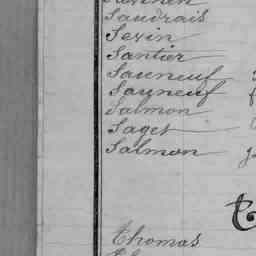 Saudrais
Sevin
Santier
Sauneuf
Sauneuf
Salmon
Saget
Salmon
t
Thomas